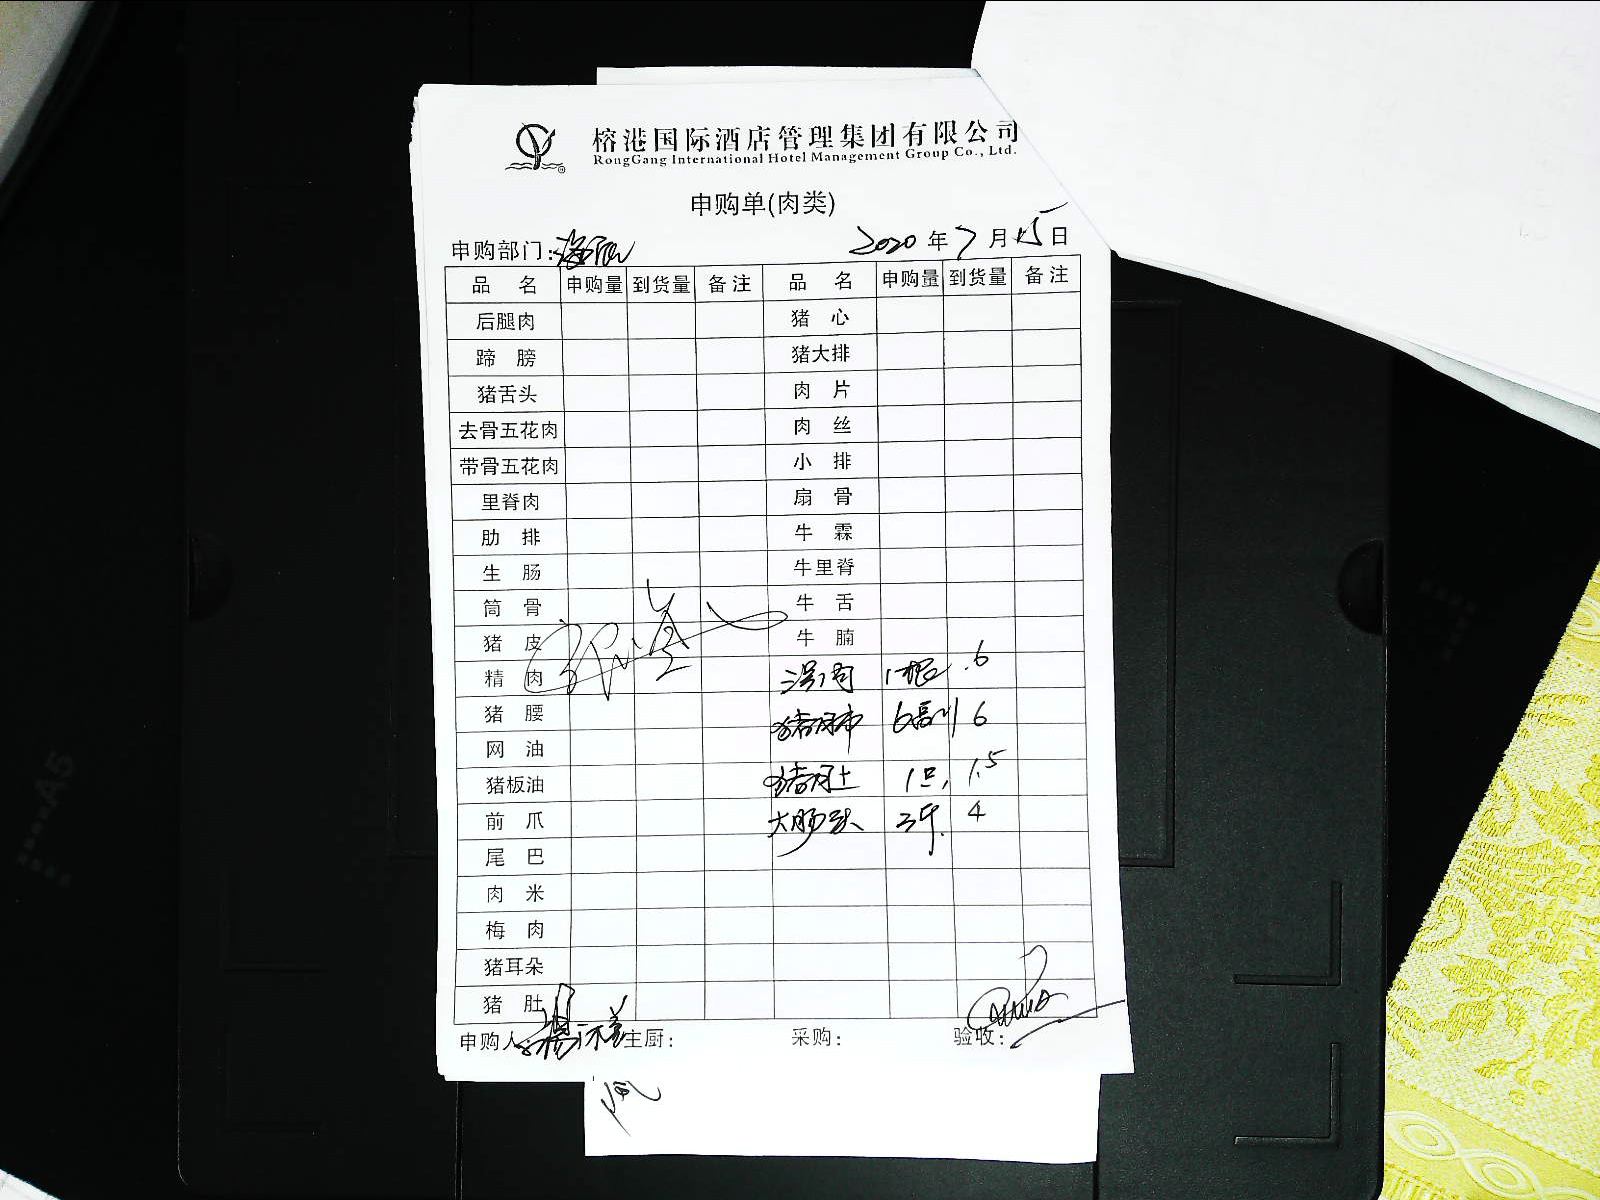 榕港国际酒店管理集团有限公司
RongGang International Hotel Management Group Co., Ltd.
申购单(肉类)
申购部门: 2020 年 7 月 15 日
品 名 申购量 到货量 备注 品 名 申购量 到货量 备注
后腿肉 猪 心
蹄 膀 猪大排
猪舌头 肉 片
去骨五花肉 肉 丝
带骨五花肉 小 排
里脊肉 扇 骨
肋 排 牛 霖
生 肠 牛里脊
筒 骨 牛 舌
猪 皮 牛 腩
精 肉 1根 .6
猪 腰 猪肺 6副 6
网 油
猪板油 猪肚 1只, 1.5
前 爪 大肠头 3斤. 4
尾 巴
肉 米
梅 肉
猪耳朵
猪 肚
申购人: 主厨: 采购: 验收: